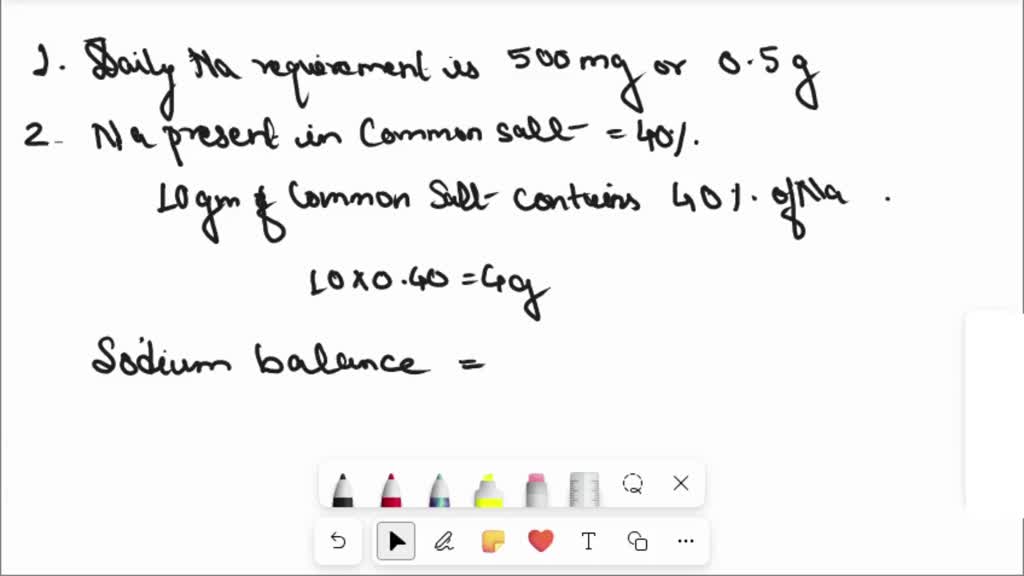 1. Daily Na requirement is 500 mg or 0.5 g
2- Na present in Common salt = 40%.
10 gm of Common Salt contains 40%. of Na .
10 x 0.40 = 4g
Sodium balance =
T